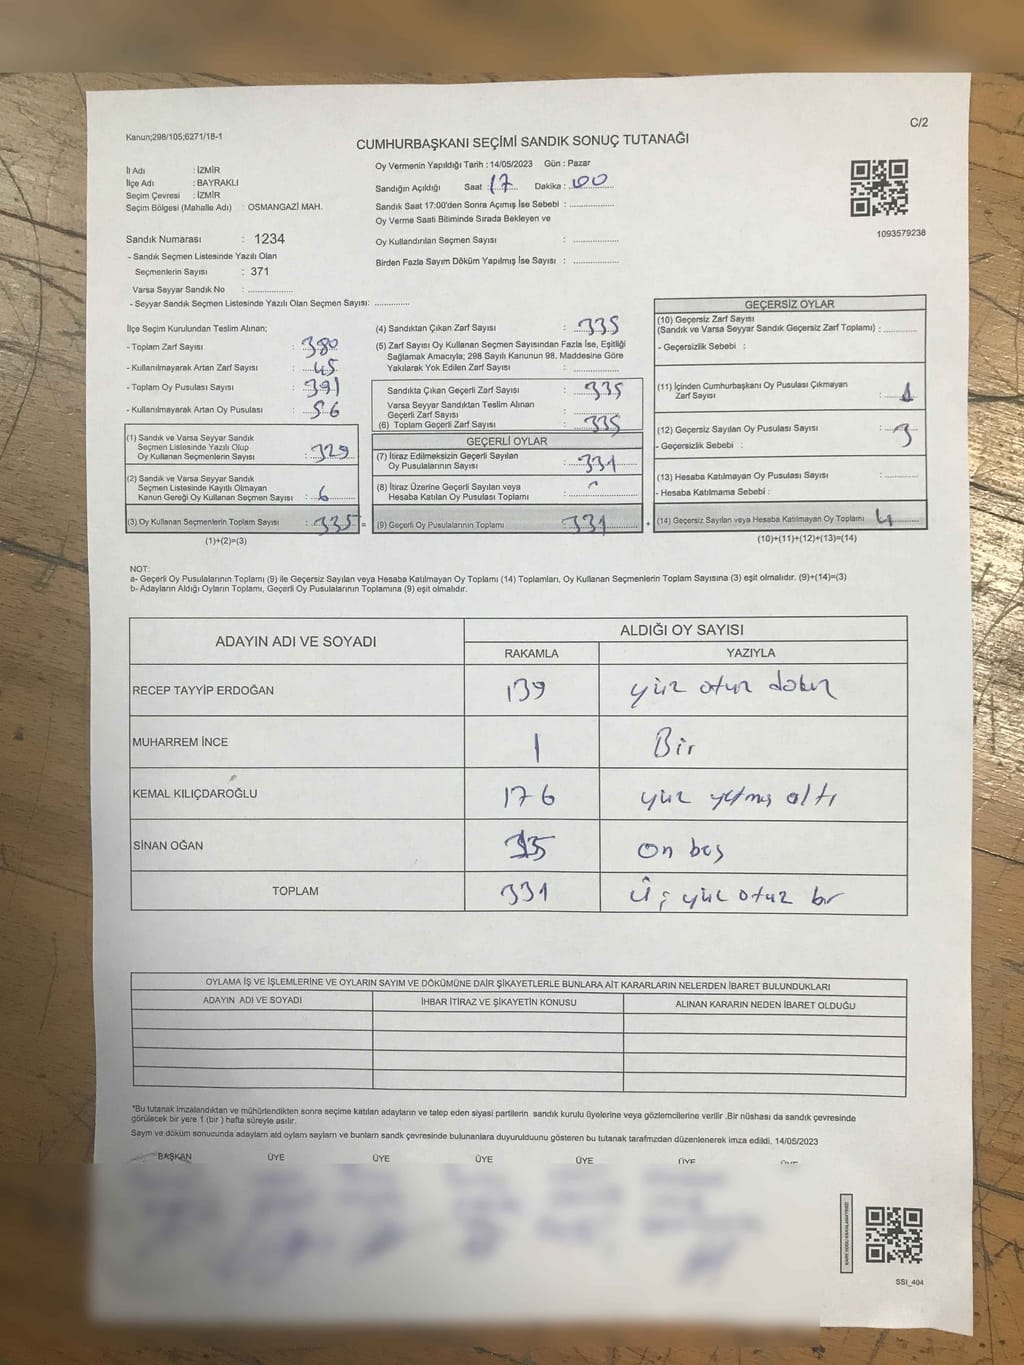 Kanun;298/105;6271/18-1
C/2
CUMHURBAŞKANI SEÇİMİ SANDIK SONUÇ TUTANAĞI
İl Adı : İZMİR
İlçe Adı : BAYRAKLI
Seçim Çevresi : İZMİR
Seçim Bölgesi (Mahalle Adı) : OSMANGAZİ MAH.
Oy Vermenin Yapıldığı Tarih : 14/05/2023 Gün : Pazar
Sandığın Açıldığı Saat : 17 Dakika : 00
Sandık Saat 17:00'den Sonra Açımış İse Sebebi : ................
Oy Verme Saati Bitiminde Sırada Bekleyen ve
Oy Kullandırılan Seçmen Sayısı : ................
Birden Fazla Sayım Döküm Yapılmış İse Sayısı : ................
1093579238
Sandık Numarası : 1234
- Sandık Seçmen Listesinde Yazılı Olan
Seçmenlerin Sayısı : 371
Varsa Seyyar Sandık No : ................
- Seyyar Sandık Seçmen Listesinde Yazılı Olan Seçmen Sayısı: ............
İlçe Seçim Kurulundan Teslim Alınan;
- Toplam Zarf Sayısı : 380
- Kullanılmayarak Artan Zarf Sayısı : 45
- Toplam Oy Pusulası Sayısı : 391
- Kullanılmayarak Artan Oy Pusulası : 56
(1) Sandık ve Varsa Seyyar Sandık
Seçmen Listesinde Yazılı Olup
Oy Kullanan Seçmenlerin Sayısı : 329
(2) Sandık ve Varsa Seyyar Sandık
Seçmen Listesinde Kayıtlı Olmayan
Kanun Gereği Oy Kullanan Seçmen Sayısı : 6
(3) Oy Kullanan Seçmenlerin Toplam Sayısı : 335 =
(1)+(2)=(3)
(4) Sandıktan Çıkan Zarf Sayısı : 335
(5) Zarf Sayısı Oy Kullanan Seçmen Sayısından Fazla İse, Eşitliği
Sağlamak Amacıyla; 298 Sayılı Kanunun 98. Maddesine Göre
Yakılarak Yok Edilen Zarf Sayısı : ................
Sandıkta Çıkan Geçerli Zarf Sayısı : 335
Varsa Seyyar Sandıktan Teslim Alınan
Geçerli Zarf Sayısı : ................
(6) Toplam Geçerli Zarf Sayısı : 335
GEÇERLİ OYLAR
(7) İtiraz Edilmeksizin Geçerli Sayılan
Oy Pusulalarının Sayısı : 331
(8) İtiraz Üzerine Geçerli Sayılan veya
Hesaba Katılan Oy Pusulası Toplamı : ................
(9) Geçerli Oy Pusulalarının Toplamı : 331 +
GEÇERSİZ OYLAR
(10) Geçersiz Zarf Sayısı
(Sandık ve Varsa Seyyar Sandık Geçersiz Zarf Toplamı) : ............
- Geçersizlik Sebebi :
(11) İçinden Cumhurbaşkanı Oy Pusulası Çıkmayan
Zarf Sayısı : 1
(12) Geçersiz Sayılan Oy Pusulası Sayısı : 3
- Geçersizlik Sebebi :
(13) Hesaba Katılmayan Oy Pusulası Sayısı : ............
- Hesaba Katılmama Sebebi :
(14) Geçersiz Sayılan veya Hesaba Katılmayan Oy Toplamı 4
(10)+(11)+(12)+(13)=(14)
NOT:
a- Geçerli Oy Pusulalarının Toplamı (9) ile Geçersiz Sayılan veya Hesaba Katılmayan Oy Toplamı (14) Toplamları, Oy Kullanan Seçmenlerin Toplam Sayısına (3) eşit olmalıdır. (9)+(14)=(3)
b- Adayların Aldığı Oyların Toplamı, Geçerli Oy Pusulalarının Toplamına (9) eşit olmalıdır.
ADAYIN ADI VE SOYADI
ALDIĞI OY SAYISI
RAKAMLA YAZIYLA
RECEP TAYYİP ERDOĞAN 139 yüz otuz dokuz
MUHARREM İNCE 1 Bir
KEMAL KILIÇDAROĞLU 176 yüz yetmiş altı
SİNAN OĞAN 15 on beş
TOPLAM 331 üç yüz otuz bir
OYLAMA İŞ VE İŞLEMLERİNE VE OYLARIN SAYIM VE DÖKÜMÜNE DAİR ŞİKAYETLERLE BUNLARA AİT KARARLARIN NELERDEN İBARET BULUNDUKLARI
ADAYIN ADI VE SOYADI İHBAR İTİRAZ VE ŞİKAYETİN KONUSU ALINAN KARARIN NEDEN İBARET OLDUĞU
*Bu tutanak imzalandıktan ve mühürlendikten sonra seçime katılan adayların ve talep eden siyasi partilerin sandık kurulu üyelerine veya gözlemcilerine verilir .Bir nüshası da sandık çevresinde
görülecek bir yere 1 (bir ) hafta süreyle asılır.
Sayım ve döküm sonucunda adayların ald oyların sayları ve bunların sandk çevresinde bulunanlara duyurulduunu gösteren bu tutanak tarafmzdan düzenlenerek imza edildi. 14/05/2023
BAŞKAN ÜYE ÜYE ÜYE ÜYE ÜYE
SSI_404